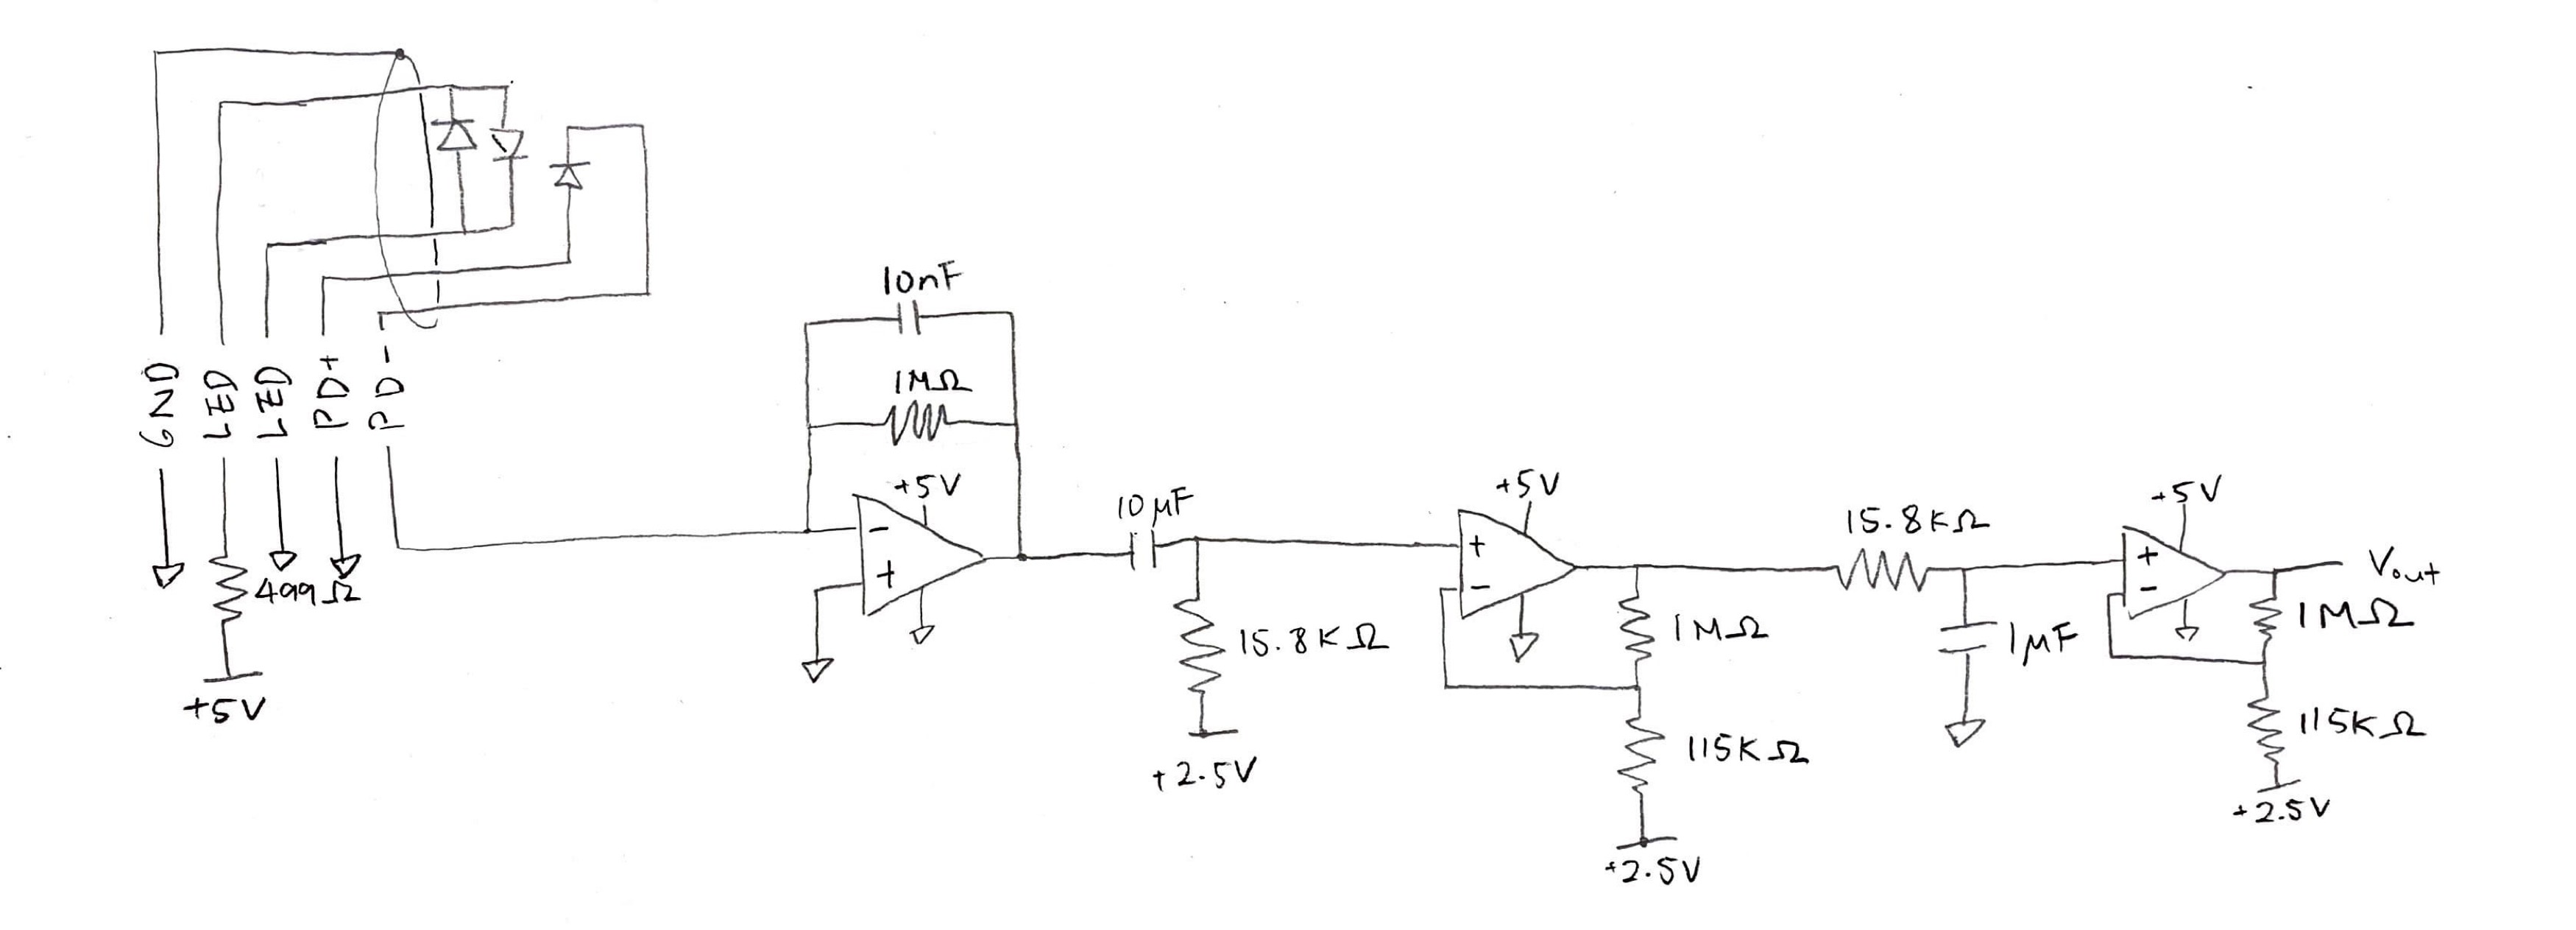 GND
LED
LED
PD+
PD-
499Ω
+5V
10nF
1MΩ
+5V
-
+
10μF
15.8KΩ
+2.5V
+5V
+
-
1MΩ
115KΩ
+2.5V
15.8KΩ
1μF
+5V
+
-
Vout
1MΩ
115KΩ
+2.5V